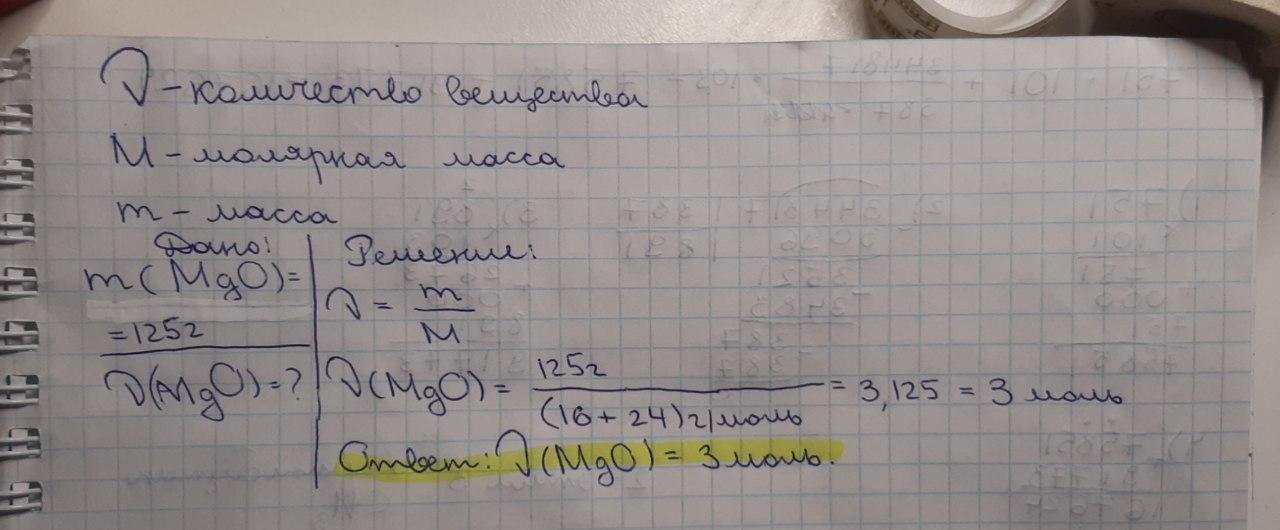 ν - количество вещества
M - молярная масса
m - масса
Дано:
m(MgO)=
=125г
ν(MgO)=?
Решение:
ν = m/M
ν(MgO) = 125г/(16+24)г/моль = 3,125 = 3 моль
Ответ: ν(MgO) = 3 моль.